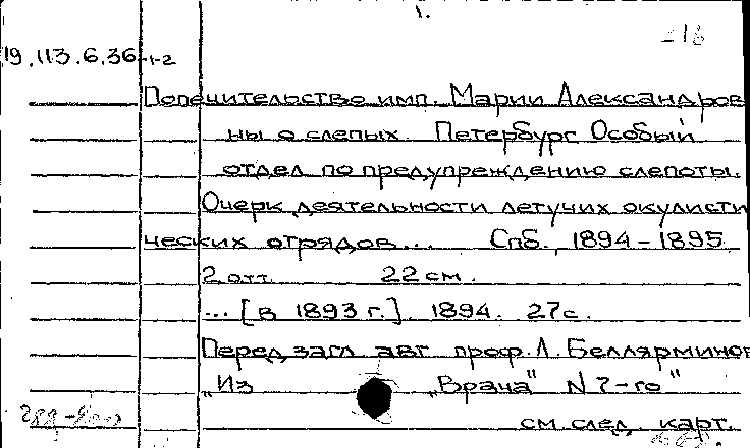 1.
-16
19.113.6.36-1-2
Попечительство имп. Марии Александров
ны о слепых. Петербург Особый
отдел по предупреждению слепоты.
Очерк деятельности летучих окулисти
ческих отрядов... Спб., 1894-1895.
2 отт. 22 см.
... [в 1893 г.]. 1894. 27 с.
Перед загл авт проф. Л. Беллярминов
„Из „Врача" N 7-го"
см. след. карт.